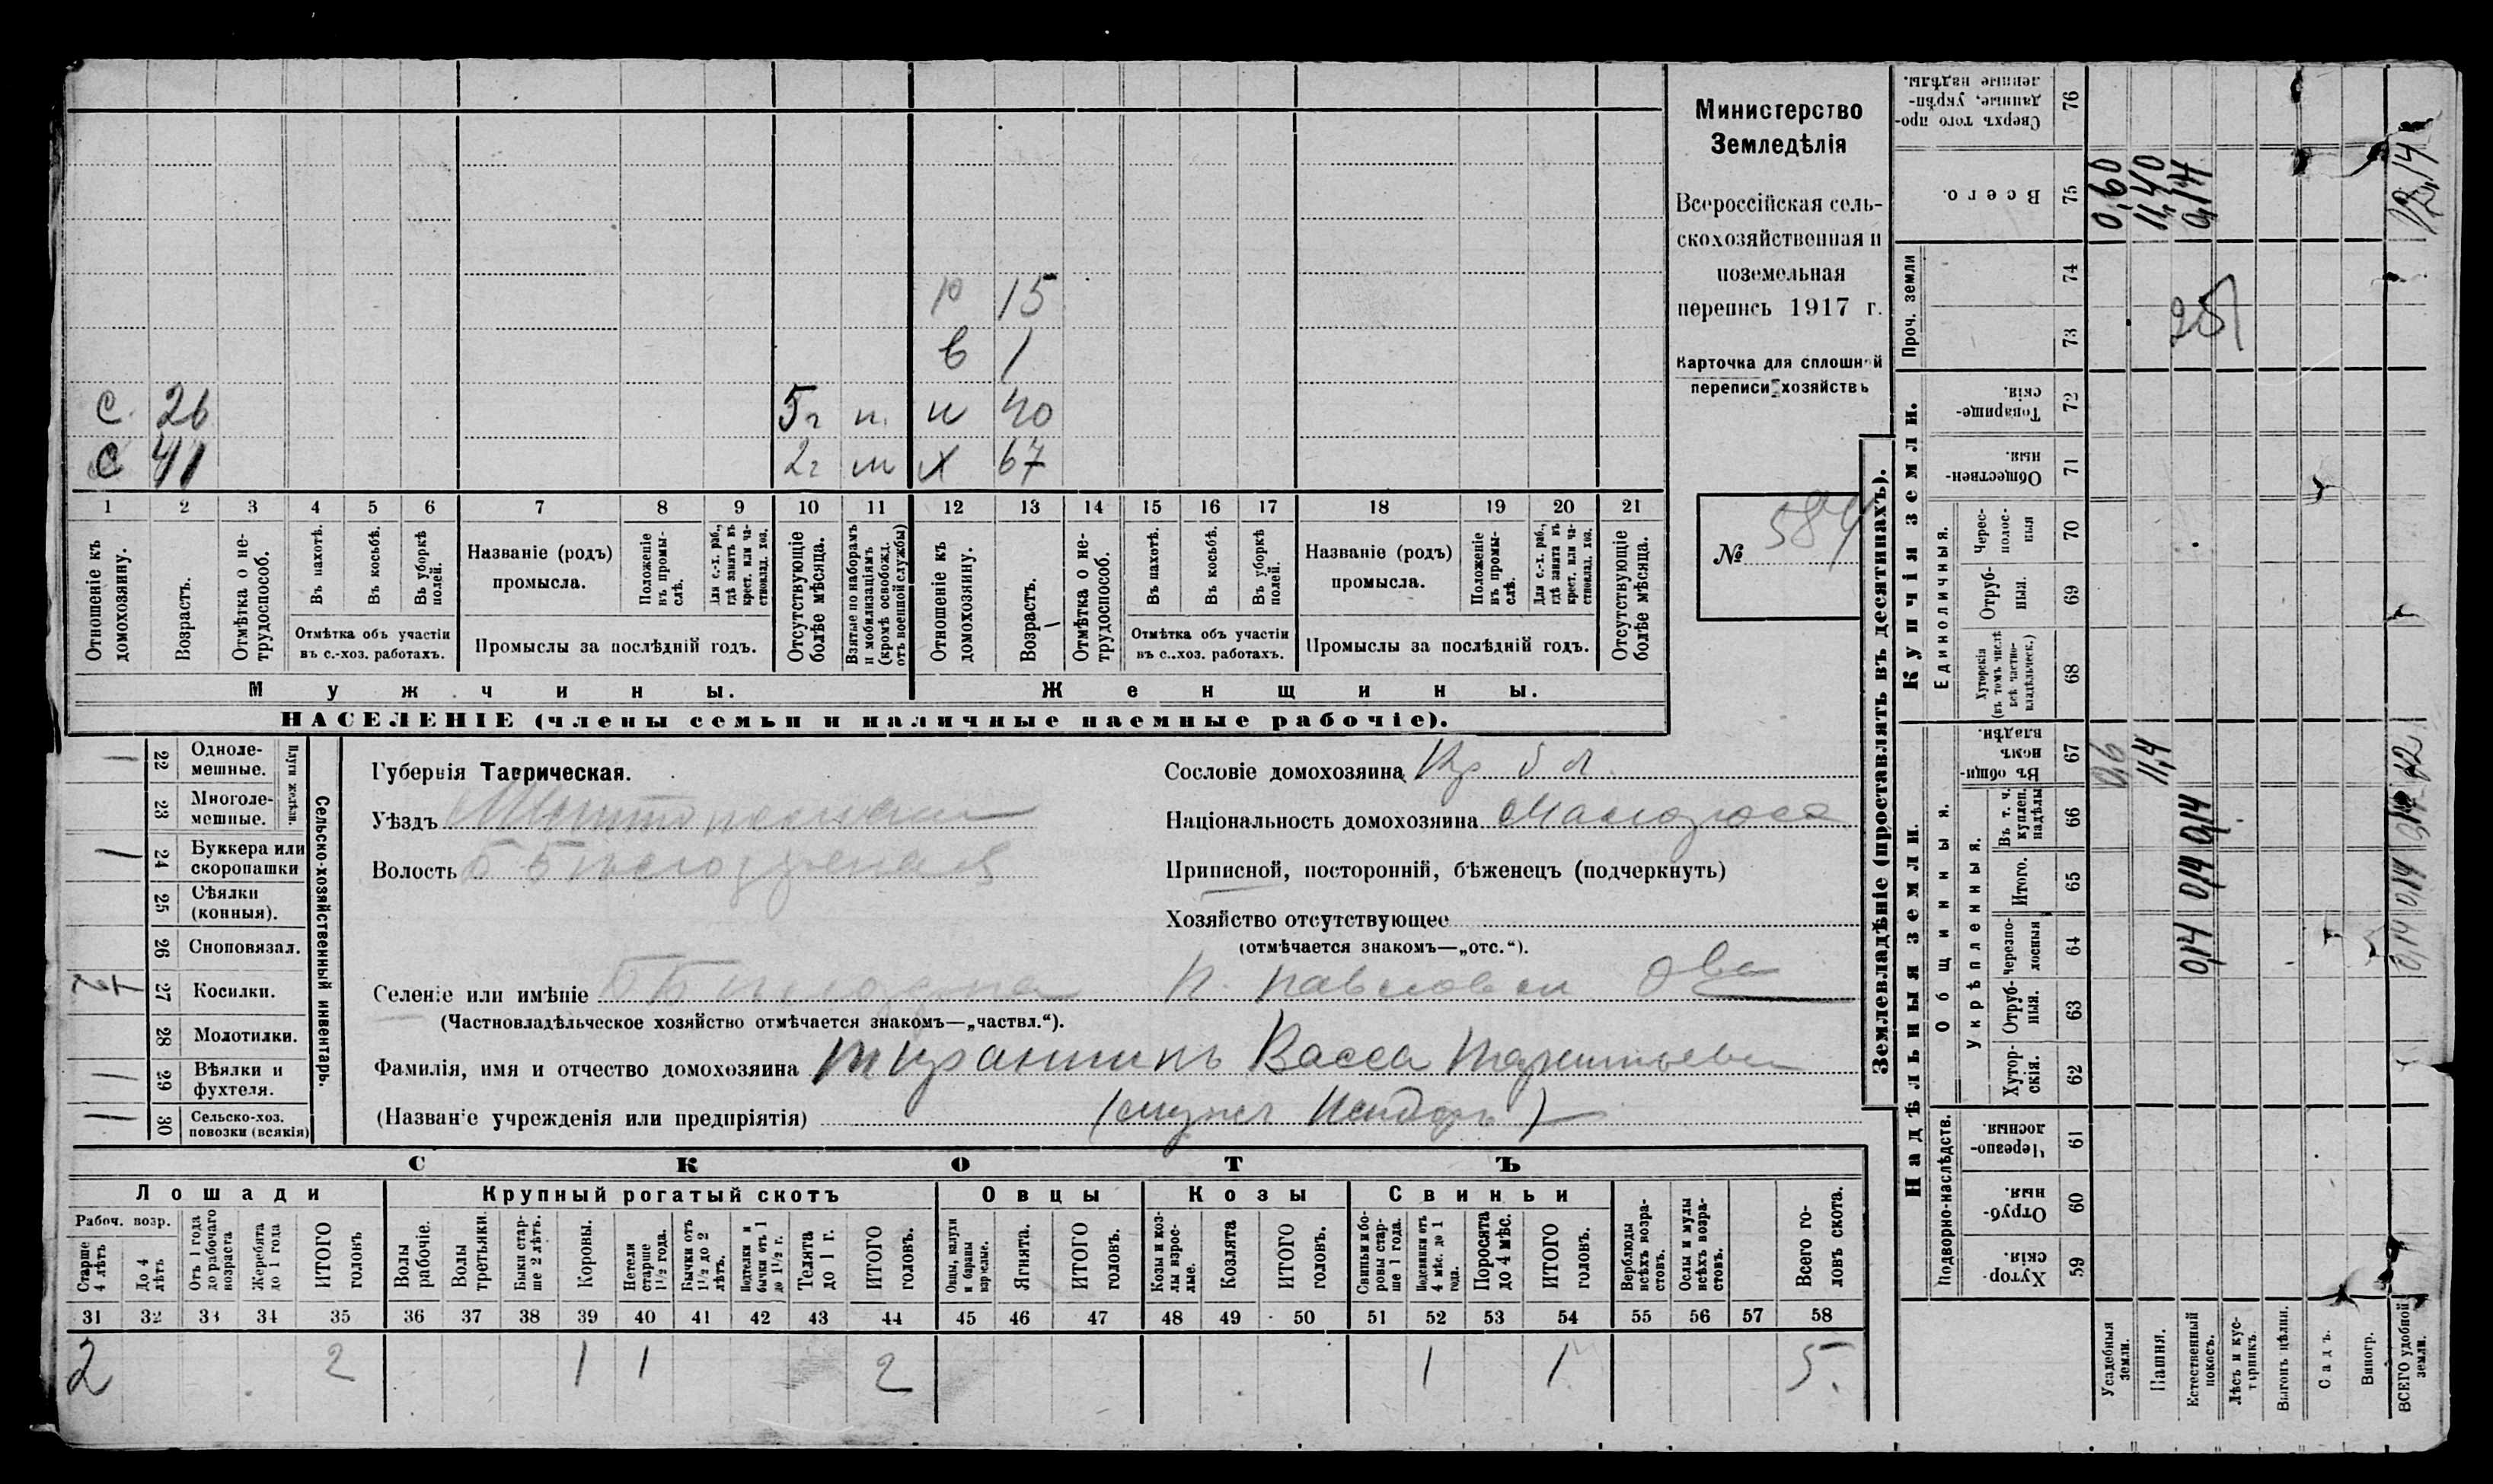 Министерство
Земледѣлія
Всероссійская сель-
скохозяйственная и
поземельная
перепись 1917 г.
Карточка для сплошной
переписи хозяйствъ
№ 584
р 15
в 1
с. 26 5 г п. н 40
с 41 2 г м х 67
1 2 3 4 5 6 7 8 9 10 11 12 13 14 15 16 17 18 19 20 21
Отношеніе къ домохозяину.
Возрастъ.
Отмѣтка о не-трудоспособ.
Въ пахотѣ.
Въ косьбѣ.
Въ уборкѣ полей.
Отмѣтка объ участіи
въ с.-хоз. работахъ.
Названіе (родъ)
промысла.
Положеніе въ промы-слѣ.
Для с.-х. раб., гдѣ занятъ въ крест. или ча-стновлад. хоз.
Промыслы за послѣдній годъ.
Отсутствующіе болѣе мѣсяца.
Взятые по наборамъ и мобилизаціямъ (кромѣ освобожд. отъ военной службы)
Отношеніе къ домохозяину.
Возрастъ.
Отмѣтка о не-трудоспособ.
Въ пахотѣ.
Въ косьбѣ.
Въ уборкѣ полей.
Отмѣтка объ участіи
въ с.-хоз. работахъ.
Названіе (родъ)
промысла.
Положеніе въ промы-слѣ.
Для с.-х. раб., гдѣ занята въ крест. или ча-стновлад. хоз.
Промыслы за послѣдній годъ.
Отсутствующіе болѣе мѣсяца.
Мужчины. Женщины.
НАСЕЛЕНІЕ (члены семьи и наличные наемные рабочіе).
Сельско-хозяйственный инвентарь.
Плуги желѣзн.
1 22 Одноле-мешные.
23 Многоле-мешные.
1 24 Буккера или скоропашки
25 Сѣялки (конныя).
26 Сноповязал.
27 Косилки.
28 Молотилки.
1 29 Вѣялки и фухтеля.
1 30 Сельско-хоз. повозки (всякія)
Губернія Таврическая.
Уѣздъ
Волость
Селеніе или имѣніе
(Частновладѣльческое хозяйство отмѣчается знакомъ—„частвл.“).
Фамилія, имя и отчество домохозяина Васса
(Названіе учрежденія или предпріятія)
Сословіе домохозяина Кр
Національность домохозяина
Приписной, посторонній, бѣженецъ (подчеркнуть)
Хозяйство отсутствующее
(отмѣчается знакомъ—„отс.“).
СКОТЪ
Лошади Крупный рогатый скотъ Овцы Козы Свиньи
Рабоч. возр.
Старше 4 лѣтъ
До 4 лѣтъ
Отъ 1 года до рабочаго возраста
Жеребята до 1 года
ИТОГО головъ
Волы рабочіе.
Волы третьяки.
Быки стар-ше 2 лѣтъ.
Коровы.
Нетели старше 1½ года.
Бычки отъ 1½ до 2 лѣтъ.
Подтелки и бычки отъ 1 до 1½ г.
Телята до 1 г.
ИТОГО головъ.
Овцы, валухи и бараны взрослые.
Ягнята.
ИТОГО головъ.
Козы и коз-лы взрос-лые.
Козлята
ИТОГО головъ.
Свиньи и бо-ровы стар-ше 1 года.
Подсвинки отъ 4 мѣс. до 1 года.
Поросята до 4 мѣс.
ИТОГО головъ.
Верблюды всѣхъ возра-стовъ.
Ослы и мулы всѣхъ возра-стовъ.
Всего го-ловъ скота.
31 32 33 34 35 36 37 38 39 40 41 42 43 44 45 46 47 48 49 50 51 52 53 54 55 56 57 58
2 2 1 1 2 1 1 5.
Землевладѣніе (проставлять въ десятинахъ).
Надѣльныя земли.
Купчія земли.
Проч. земли
Подворно-наслѣдств.
Общинныя.
Укрѣпленныя.
Единоличныя.
Хутор-скія. 59
Отруб-ныя. 60
Черезпо-лосныя. 61
Хутор-скія. 62
Отруб-ныя. 63
Черезпо-лосныя 64
Итого. 65
Въ т. ч. куплен. надѣлы 66
Въ общин-номъ владѣн. 67
Хуторскія (въ томъ числѣ всѣ частно-владѣльческ.) 68
Отруб-ныя. 69
Черес-полос-ныя 70
Обществен-ныя. 71
Товарище-скія. 72
73
74
Всего. 75
Сверхъ того про-данные, укрѣп-ленные надѣлы. 76
Усадебныя земли. 0,6 0,60
Пашня. 11,4 11,40
Естественный покосъ. 0,14 0,14 0,14 0,14
Лѣсъ и кус-тарникъ.
Выгонъ цѣлин.
Садъ.
Виногр.
ВСЕГО удобной земли. 0,14 0,14 0,14 12 12,14